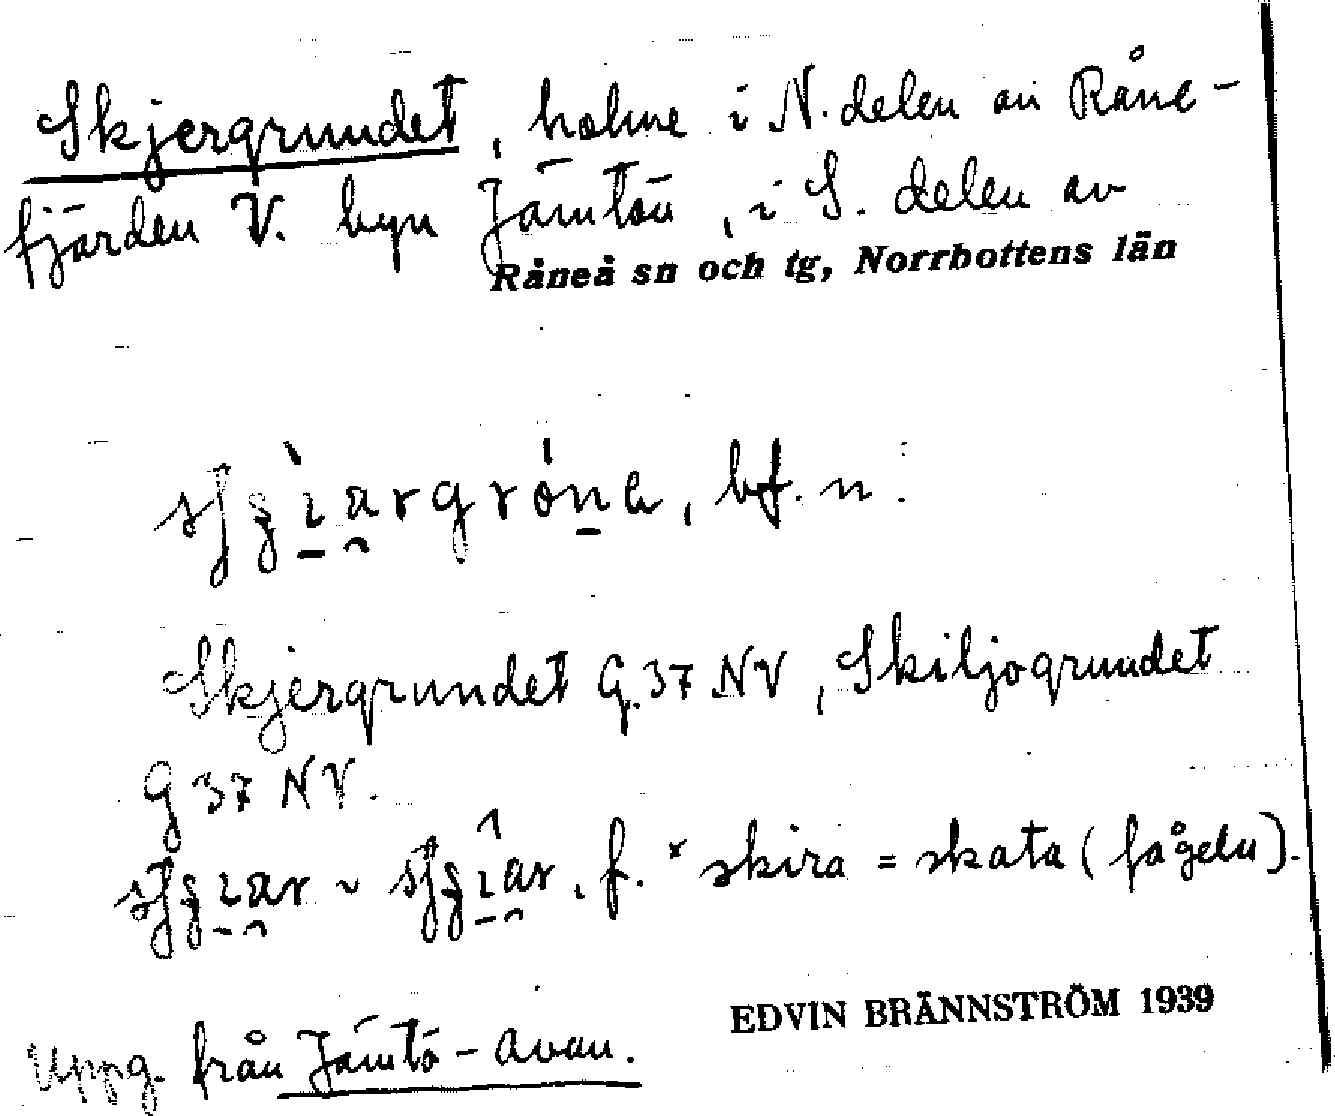 Skjergrundet, holme i N. delen av Råne-
fjärden V. byn Jämtön, i S. delen av
Råneå sn och tg, Norrbottens län
bf. n.
Skjergrundet G 37 NV, Skiljogrundet
G 37 NV.
f. *skira = skata (fågeln).
EDVIN BRÄNNSTRÖM 1939
Uppg. från Jämtö-Avan.